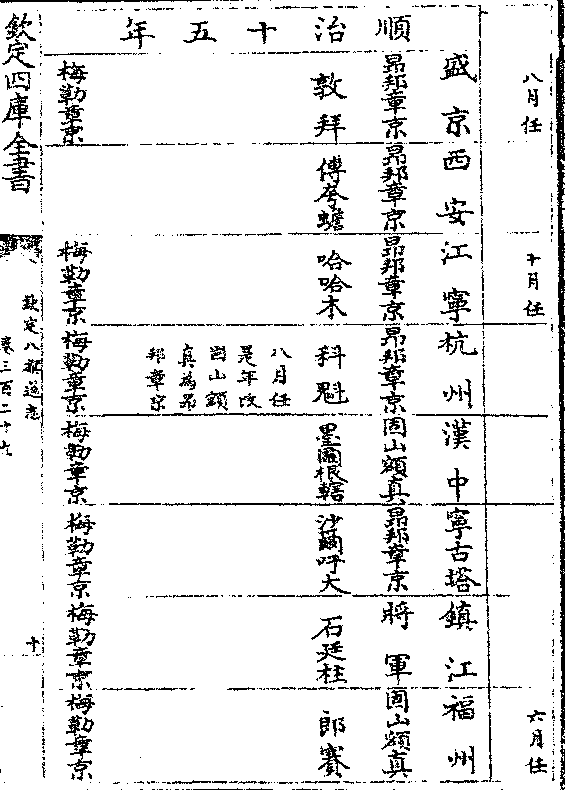 八月任
十月任
六月任
順治十五年
盛京
西安
江寧
杭州
漢中
寧古塔
鎮江
福州
昂邦章京
昂邦章京
昂邦章京
昂邦章京
固山額真
昂邦章京
將軍
固山額真
敦拜
傅夸蟾
哈哈木
科魁
墨爾根轄
沙爾呼大
石廷柱
郎賽
八月任
是年改
固山額
真為昂
邦章京
梅勒章京
梅勒章京
梅勒章京
梅勒章京
梅勒章京
梅勒章京
梅勒章京
欽定四庫全書
欽定八旗通志
卷三百二十
十